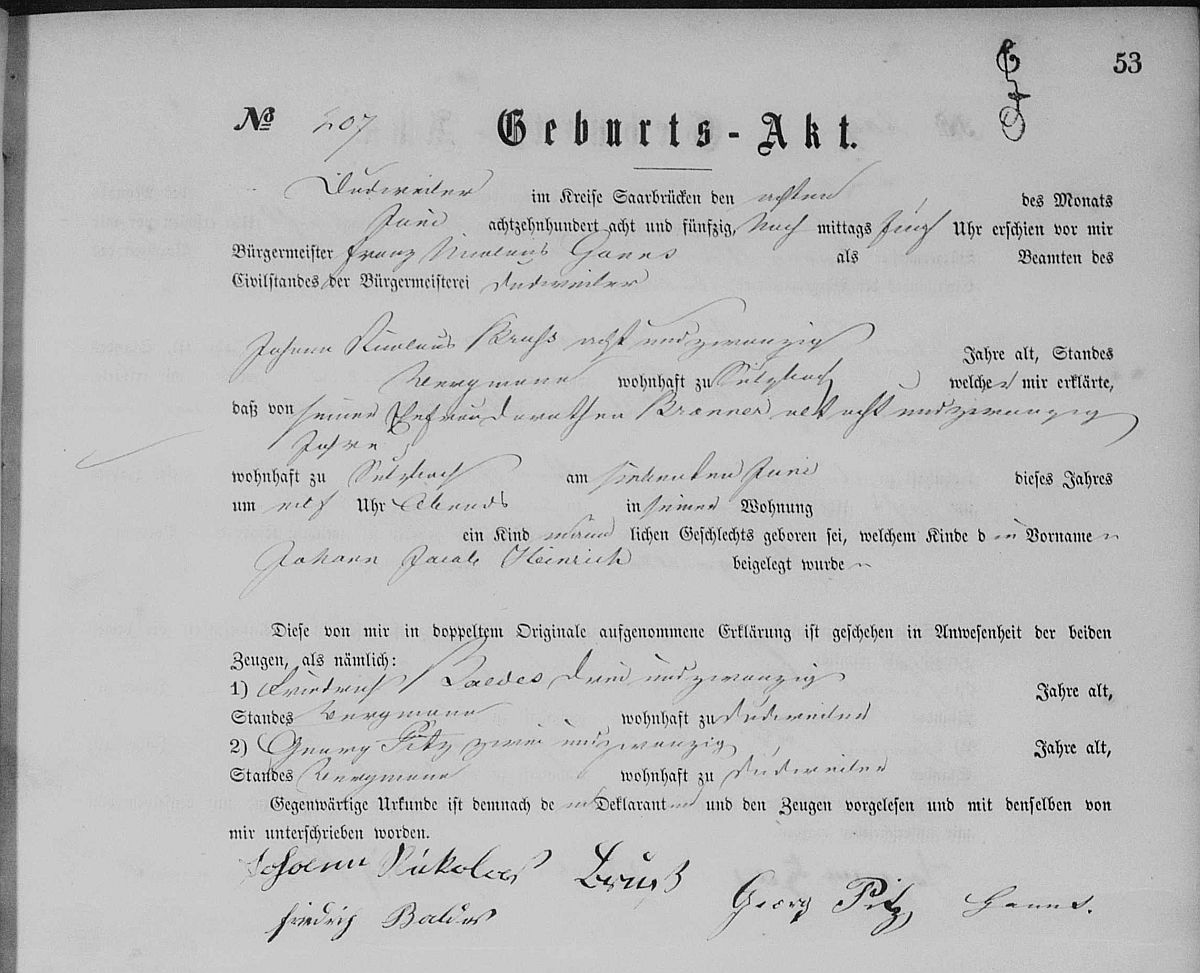 53
No 207 Geburts-Akt.
Dudweiler im Kreise Saarbrücken den achten des Monats
Juni achtzehnhundert acht und fünfzig, Nach mittags fünf Uhr erschien vor mir
Bürgermeister Franz Nicolaus als Beamten des
Civilstandes der Bürgermeisterei Dudweiler
Johann Nicolaus acht und zwanzig
Jahre alt, Standes
Bergmann wohnhaft zu Sulzbach welcher mir erklärte,
daß von seiner Ehefrau Dorothea Brenner alt acht und zwanzig
Jahre
wohnhaft zu Sulzbach am siebenten Juni dieses Jahres
um elf Uhr Abends in seiner Wohnung
ein Kind männ lichen Geschlechts geboren sei, welchem Kinde die Vornamen
Johann Jacob Heinrich beigelegt wurden
Diese von mir in doppeltem Originale aufgenommene Erklärung ist geschehen in Anwesenheit der beiden
Zeugen, als nämlich:
1) Friedrich Baldes drei und zwanzig Jahre alt,
Standes Bergmann wohnhaft zu Dudweiler
2) Georg Pitz zwei und zwanzig Jahre alt,
Standes Bergmann wohnhaft zu Dudweiler
Gegenwärtige Urkunde ist demnach dem Deklaranten und den Zeugen vorgelesen und mit denselben von
mir unterschrieben worden.
Johann Nikolas
Friedrich Baldes Georg Pitz